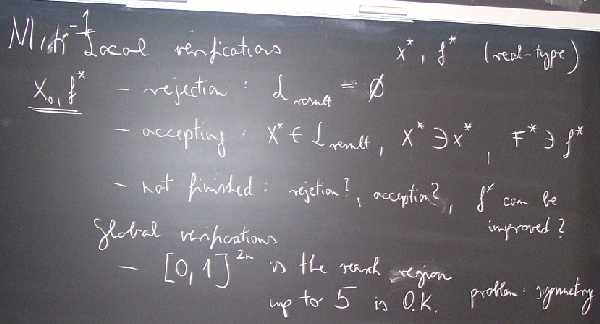 Local verifications x*, f* (real-type)
x₀, f* - rejection : L result = ∅
- accepting : X* ∈ L result, X* ∋ x*, F* ∋ f*
- not finished : rejection?, acception?, f* can be
improved?
Global verifications
- [0,1]²ⁿ is the search region
up to 5 is O.K. problem : symmetry